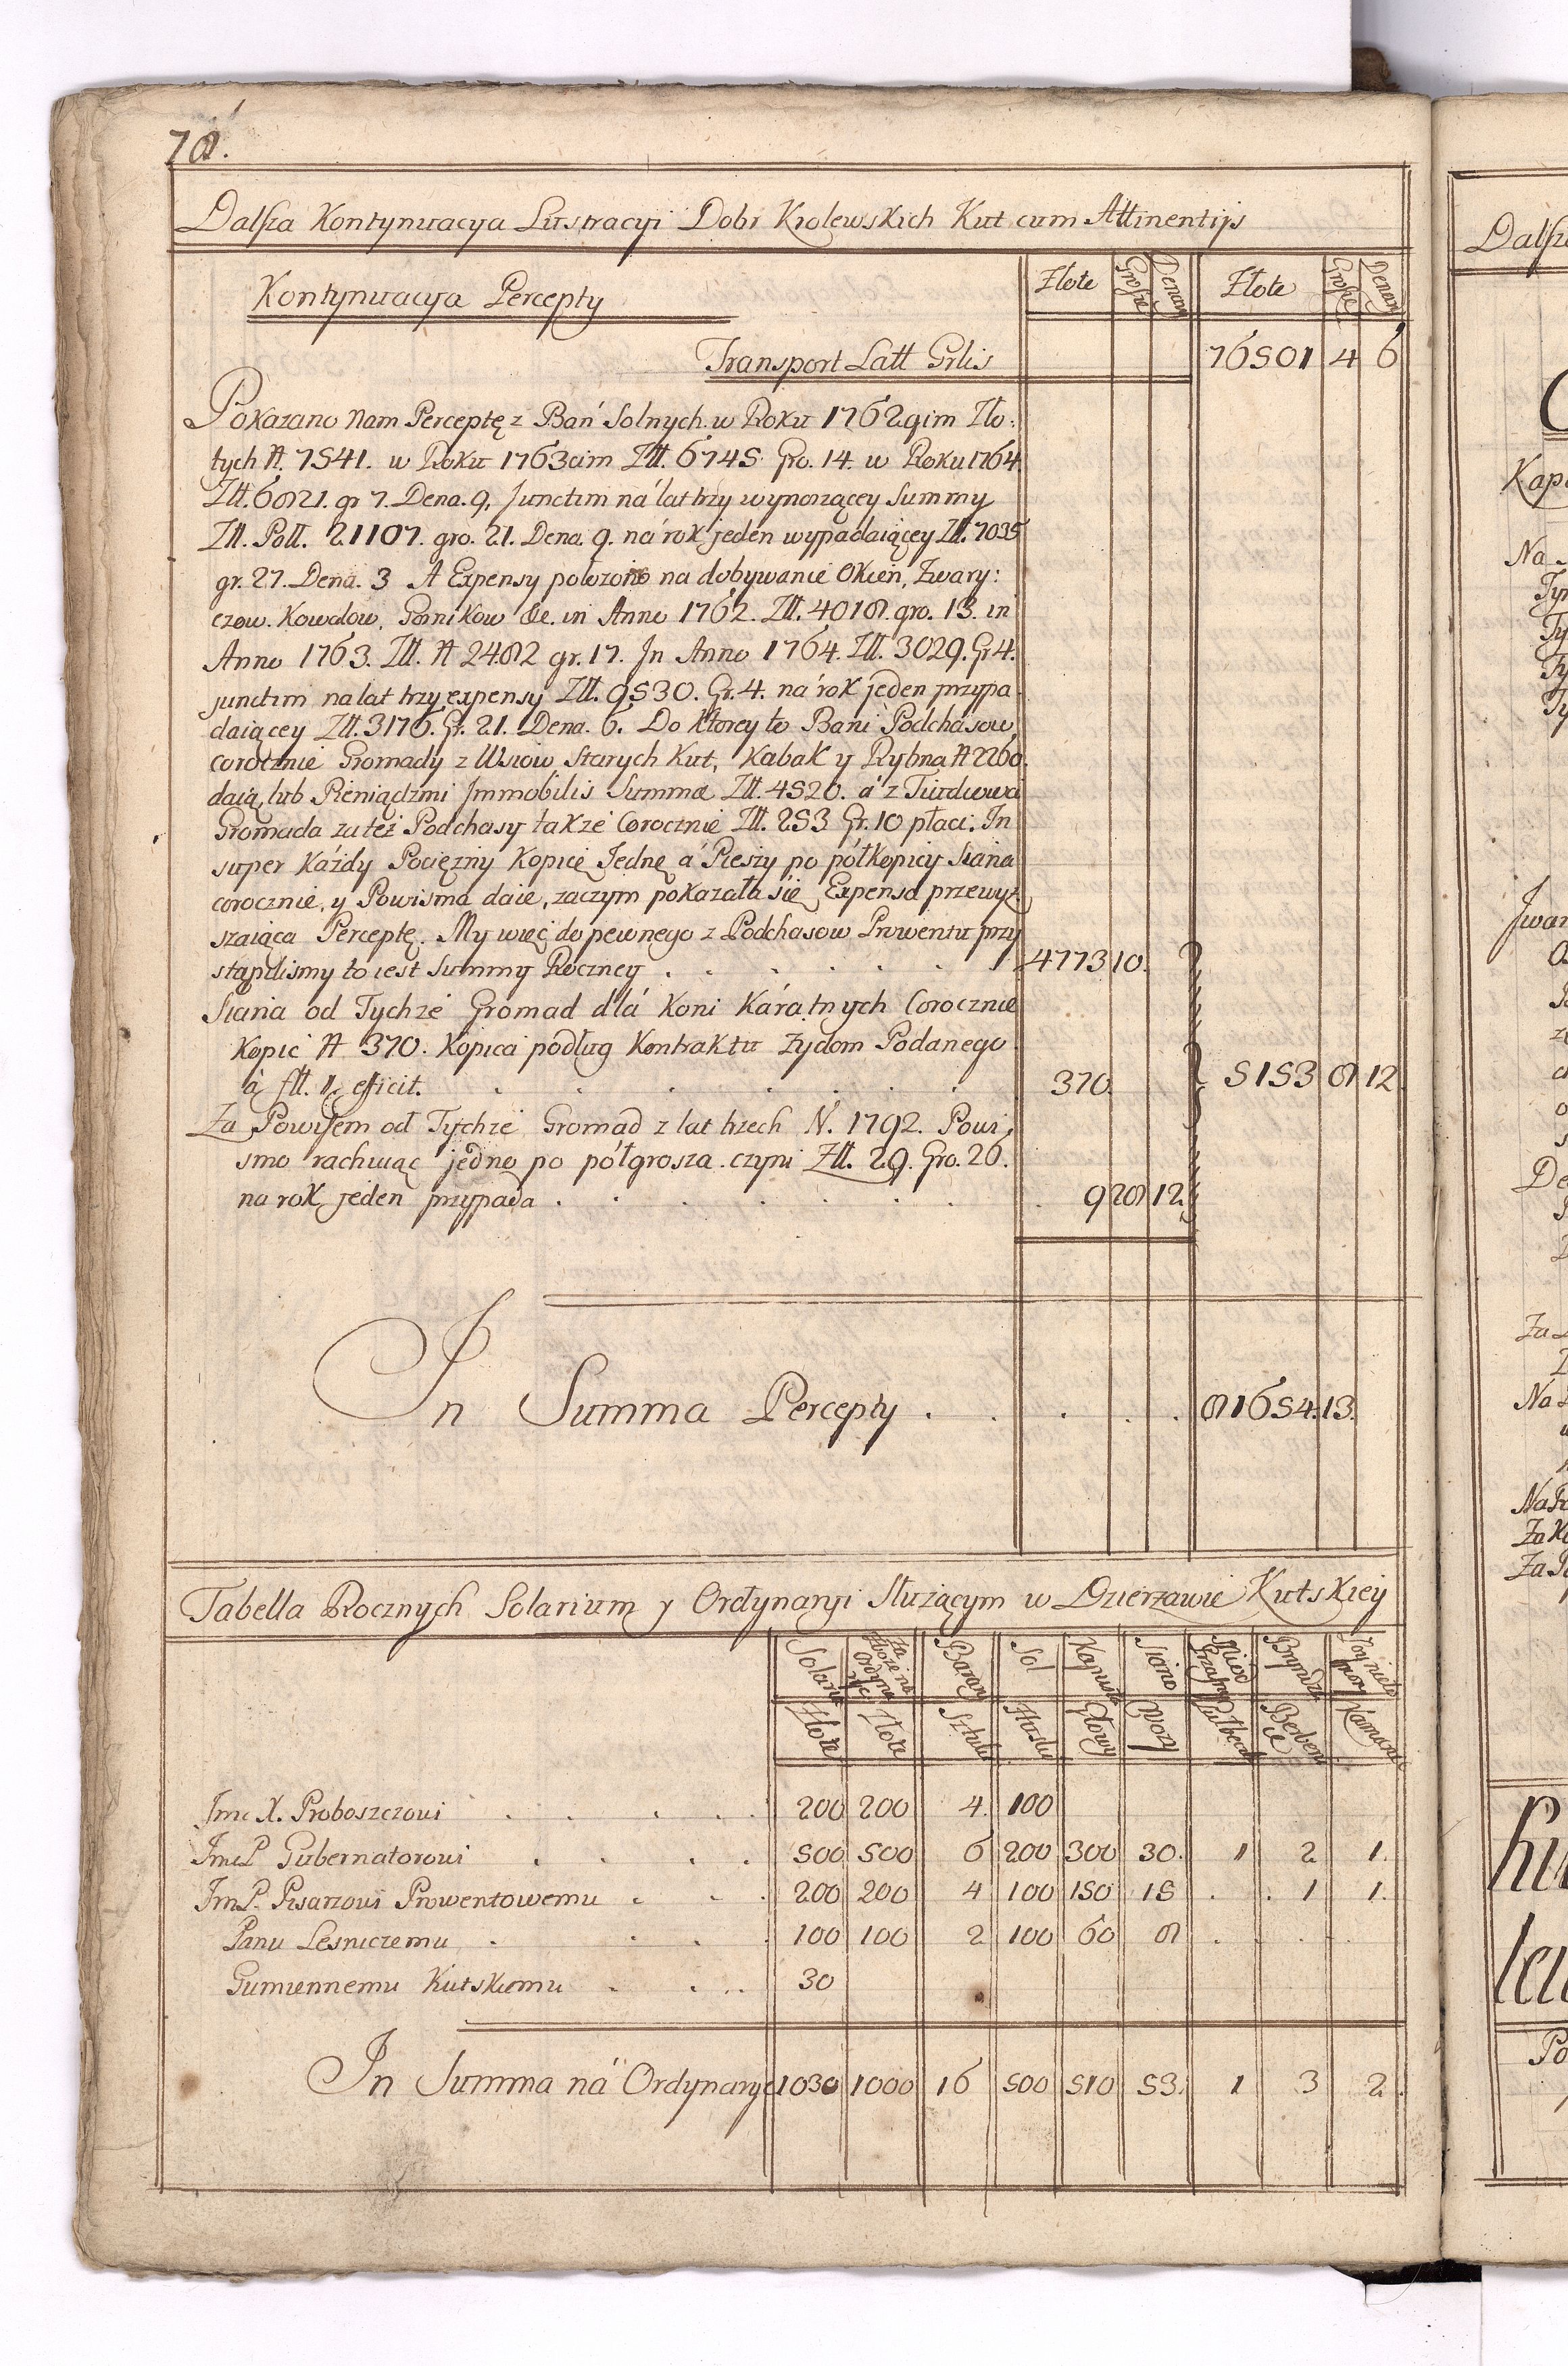 78.
Dalsza Kontynuacya Lustracyi Dobr Krolewskich Kut cum Attinentijs
Kontynuacya Percepty
Złote Grosze Denary Złote Grosze Denary
Transport Latt Grlis 76501 4 6
Pokazano Nam Perceptę z Bań Solnych w Roku 1762gim Zło:
tych N. 7541. w Roku 1763cim Złł. 6745 Gro. 14. w Roku 1764
Złł. 6821. gr 7. Dena. 9, Junctim ná lat trzy wynoszącey Summy
Złł. Poll. 21107. gro. 21. Dena. 9. ná rok jeden wypadaiącey Złł. 7035
gr. 27. Dena. 3 A Expensy położono na dobywanie Okien, Zwary:
czow. Kowalow, Gornikow &c. in Anno 1762. Złł. 4018. gro. 13. in
Anno 1763. Złł. N 2482 gr. 17. Jn Anno 1764. Złł. 3029. Gr 4.
junctim na lat trzy expensy Złł. 9530. Gr. 4. ná rok jeden przypa
daiącey Złł. 3176. Gr. 21. Dena. 6. Do ktorey to Bani Podchasow,
corocznie Gromady z Wsiow Starych Kut, Kabak y Rybna N 2260.
daią, lub Pieniądzmi Jmmobilis Summa Złł. 4520. á z Tiudiowa
Gromada za też Podchasy także Corocznie Złł. 253 Gr. 10 płaci. Jn
super Káżdy Pociężny Kopicę Jednę á Pieszy po półkopicy Siana
corocznie, y Powisma daie, zaczym pokazała się Expensa przewyż
szaiąca Perceptę. My więc do pewnego z Podchasow Prowentu przy
stąpilismy to iest Summy Roczney . . . . . . 4773 10.
Siana od Tychże Gromad dlá Koni Kárátnych Corocznie
Kopic N 370. Kopica podług Kontraktu Żydom Podanego
à fłł. 1. efficit. . . . . . . 370. 5153 8 12.
Za Powisem od Tychże Gromad z lat trzech N. 1792. Powi,
smo rachuiąc jedno po półgrosza czyni Złł. 29. Gro. 26.
na rok jeden przypada . . . . . . . 9 28 12.
Jn Summa Percepty . . . . . 81654. 13.
Tabella Rocznych Solarium y Ordynaryi Służącym w Dzierzawie Kutskiey
Solaria Za zboże na Ordyna Barany Sol Kapusta Siano Miod Przasny Bryndza
Złote Złote Sztuki Głowy Wozy
Jmc X. Proboszczowi . . . . 200 200 4. 100
JmcP Gubernatorowi . . . . 500 500 6 200 300 30. 1 2 1.
JmP. Pisarzowi Prowentowemu . . . 200 200 4 100 150 15 . . 1 1.
Panu Lesniczemu . . . . 100 100 2 100 60 8 . . . .
Gumiennemu Kutskiemu . . . . 30
Jn Summa ná Ordynarye 1030 1000 16 500 510 53. 1 3 2.